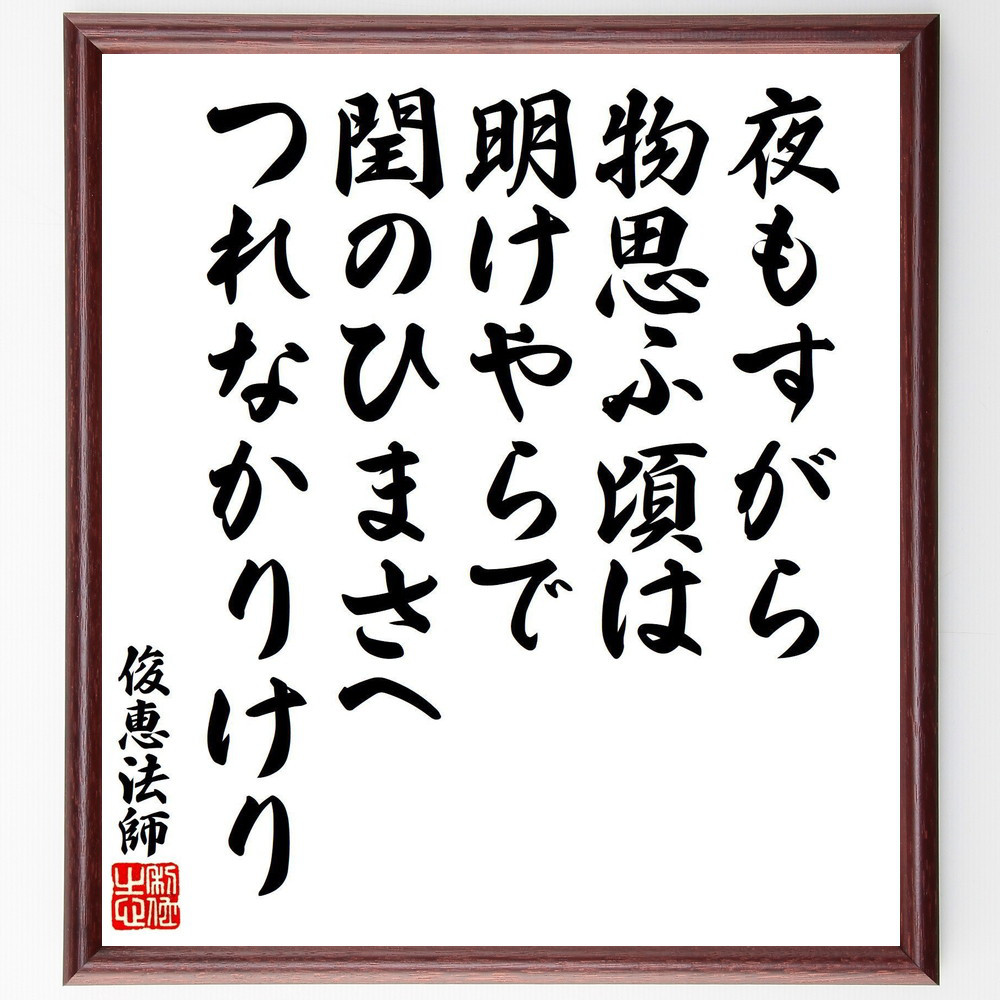 夜もすがら
物思ふ頃は
明けやらで
閨のひまさへ
つれなかりけり
俊恵法師